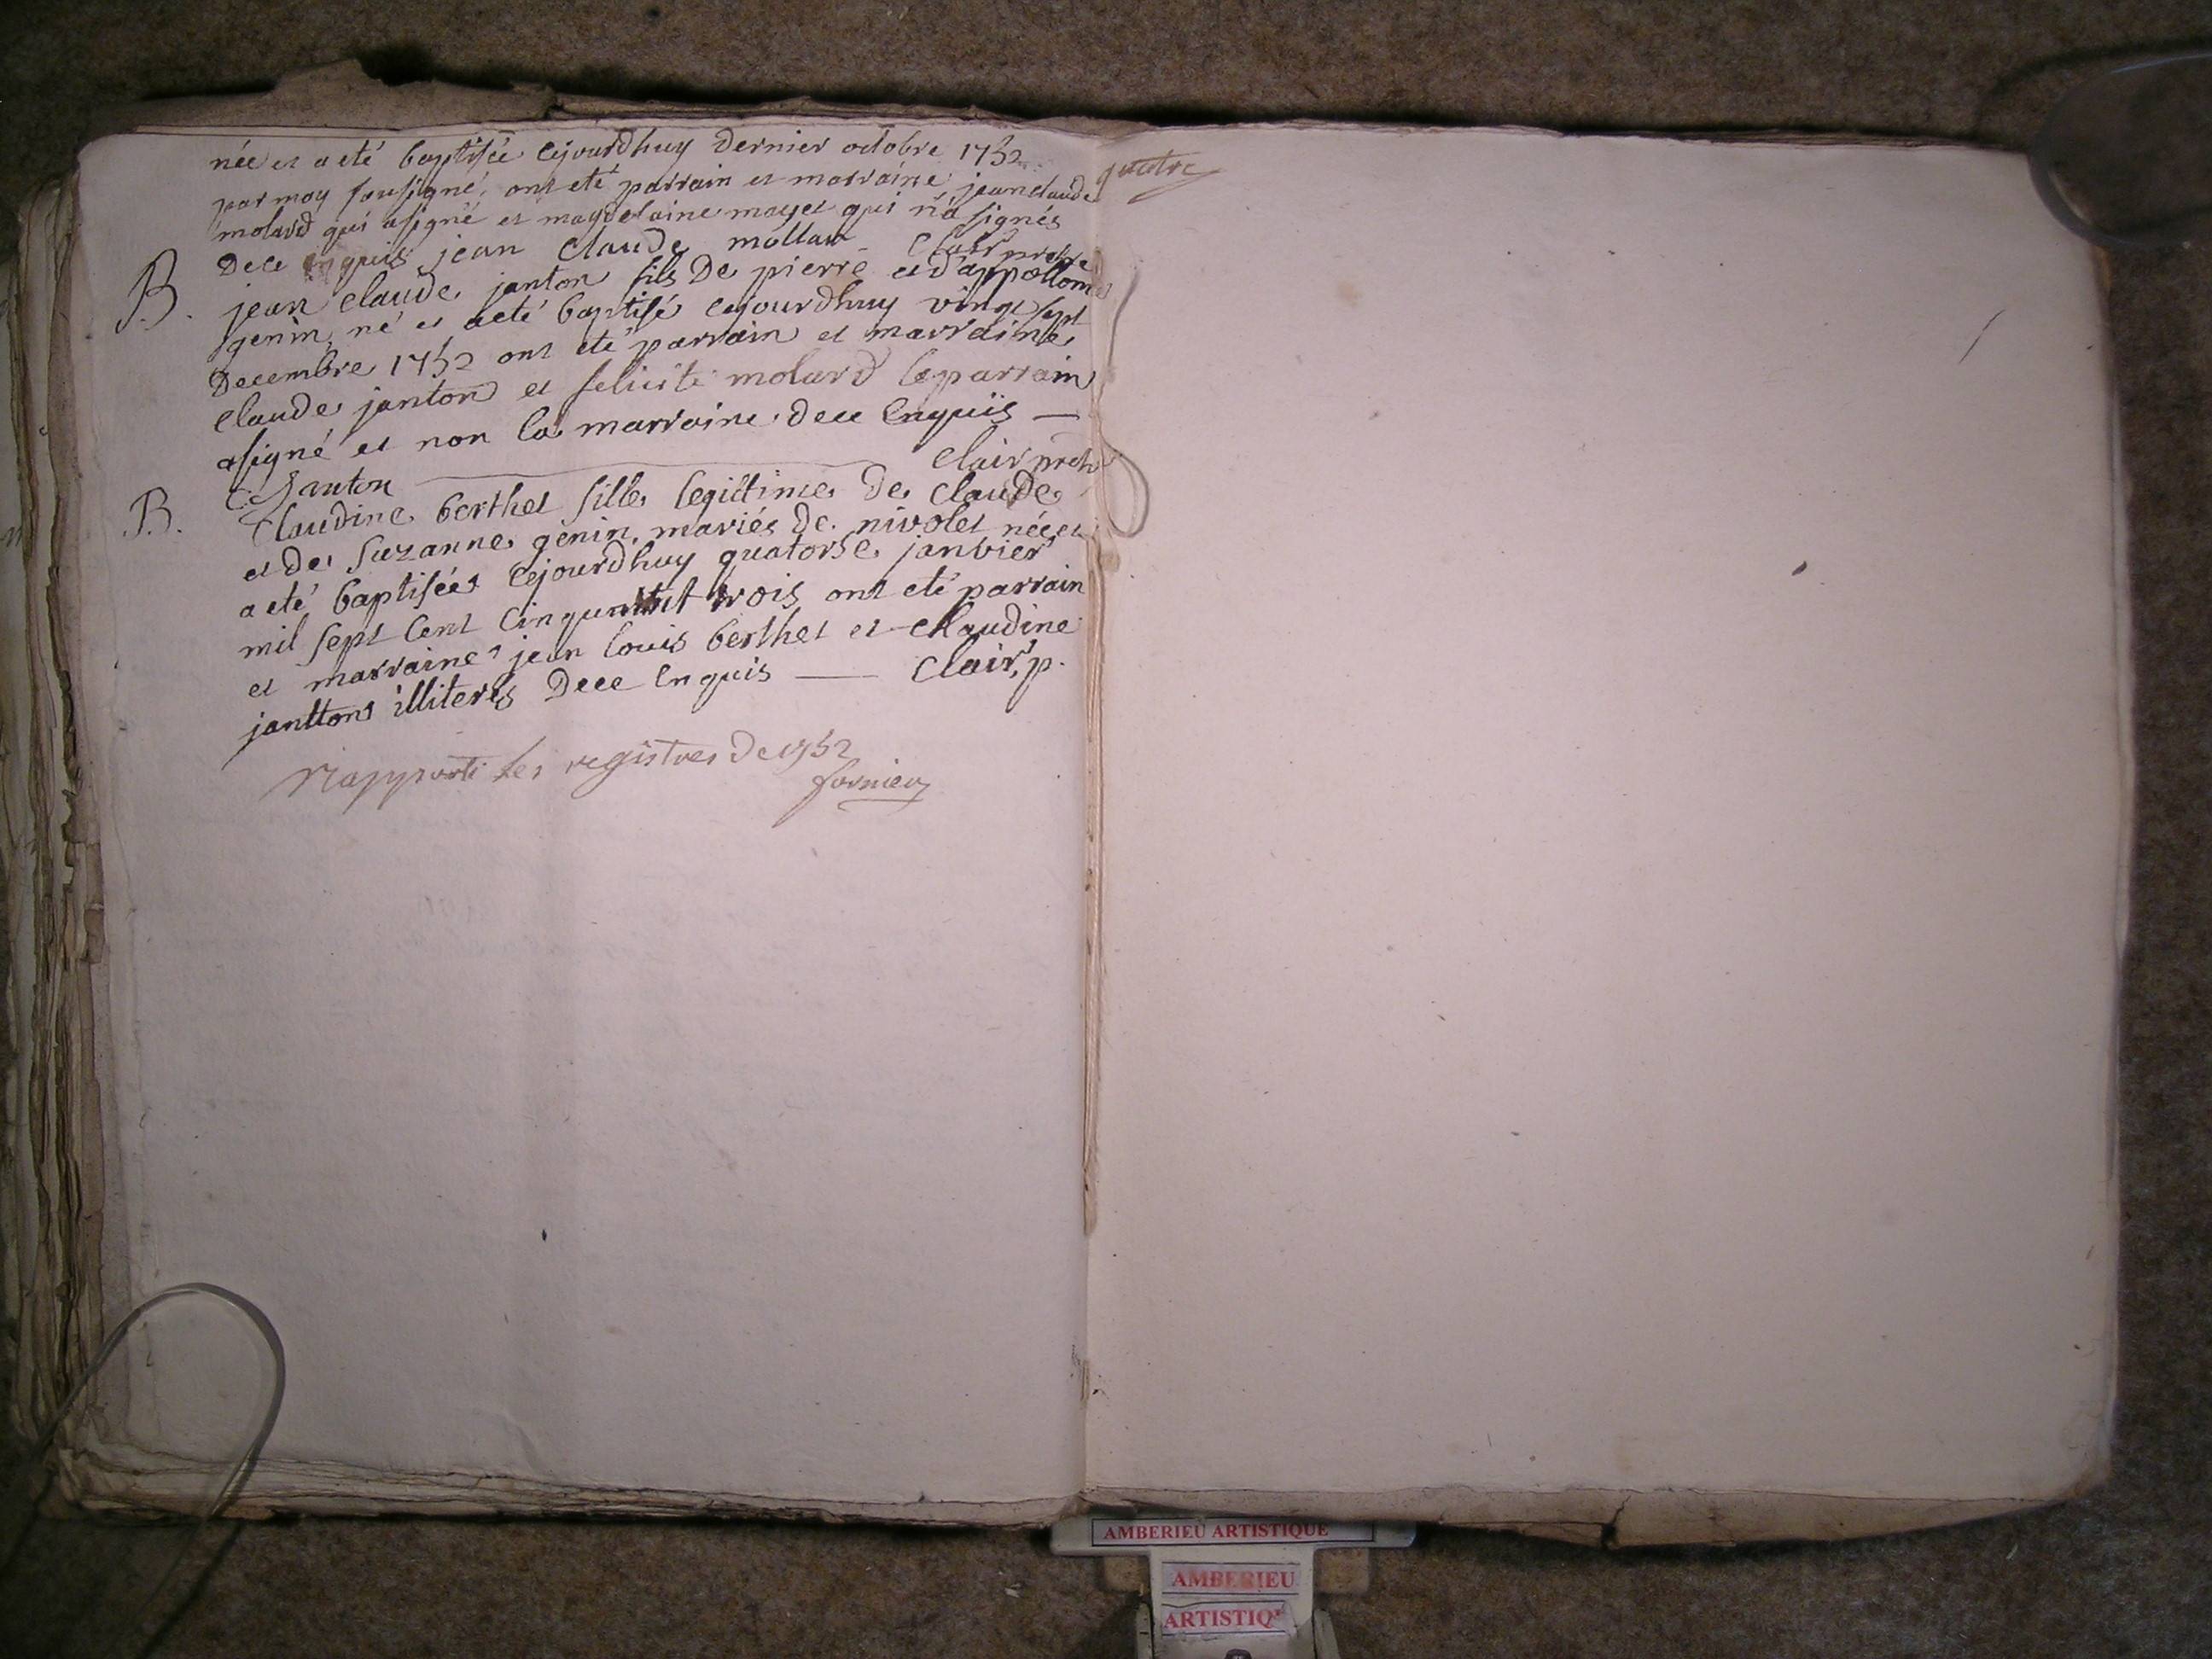 née et a eté baptisée cejourdhuy dernier octobre 1752
par moy sousigné, ont eté parrain et marraine, jean claude
molard qui a signé et magdelaine mayet qui n'a signés
Dece enquis jean claude mollar Clair pretre
B. jean claude janton fils De pierre et d'appollonie
genin, né et a eté baptisé cejourdhuy vingt sept
Decembre 1752 ont eté parrain et marraine,
claude janton et felicite molard le parrain
a signé et non la marraine dece Enquis —
C: Janton Clair pretr
B. Claudine berthet fille legittime de claude
et de Suzanne genin, mariés de nivolet née et
a eté baptisée cejourdhuy quatorse janvier
mil sept cent cinquante trois ont eté parrain
et marraine jean louis berthet et claudine
janttons illiterés Dece Enquis — Clair, p.
Rapporté les registres de 1752
fornier
quatre
AMBERIEU ARTISTIQUE
AMBERIEU
ARTISTIQ